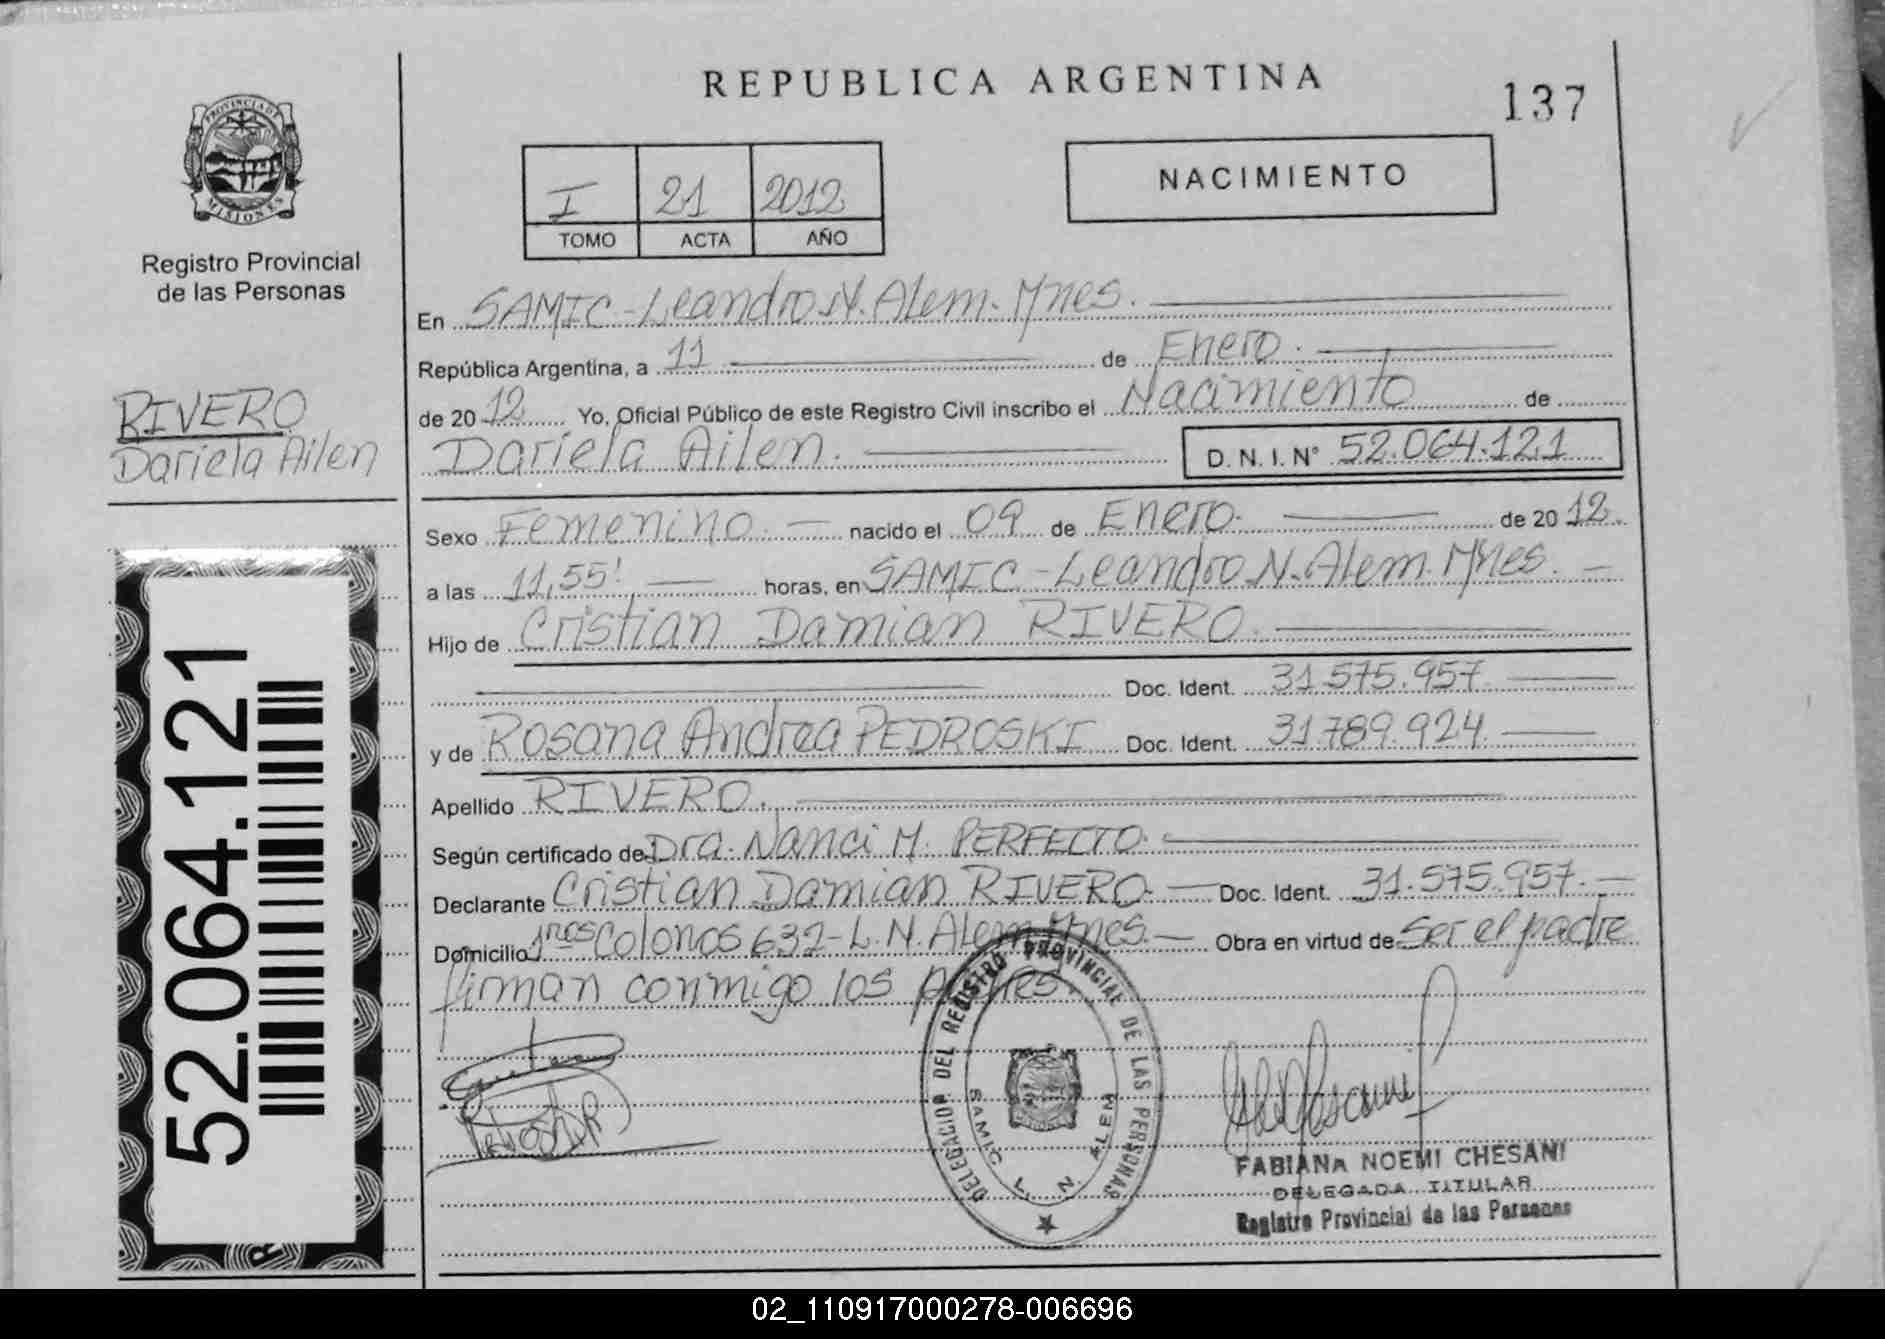 REPUBLICA ARGENTINA
137
PROVINCIA DE
MISIONES
Registro Provincial
de las Personas
I 21 2012
TOMO ACTA AÑO
NACIMIENTO
En SAMIC-Leandro N. Alem. Mnes.
República Argentina, a 11 de Enero.
de 20 12 Yo, Oficial Público de este Registro Civil inscribo el Nacimiento de
RIVERO
Dariela Ailen
Dariela Ailen. D. N. I. N° 52.064.121
Sexo Femenino. nacido el 09 de Enero. de 20 12.
a las 11,55' horas, en SAMIC-Leandro N. Alem. Mnes.
Hijo de Cristian Damian RIVERO.
Doc. Ident. 31.575.957
y de Rosana Andrea PEDROSKI Doc. Ident. 31.789.924
Apellido RIVERO.
Según certificado de Dra. Nanci M. PERFECTO.
Declarante Cristian Damian RIVERO. Doc. Ident. 31.575.957.
Domicilio 1ros Colonos 632-L.N. Alem Mnes. Obra en virtud de Ser el padre
firman conmigo los padres.
52.064.121
DELEGACION DEL REGISTRO PROVINCIAL DE LAS PERSONAS
SAMIC L. N. ALEM
FABIANA NOEMI CHESANI
DELEGADA TITULAR
Registro Provincial de las Personas
02_110917000278-006696